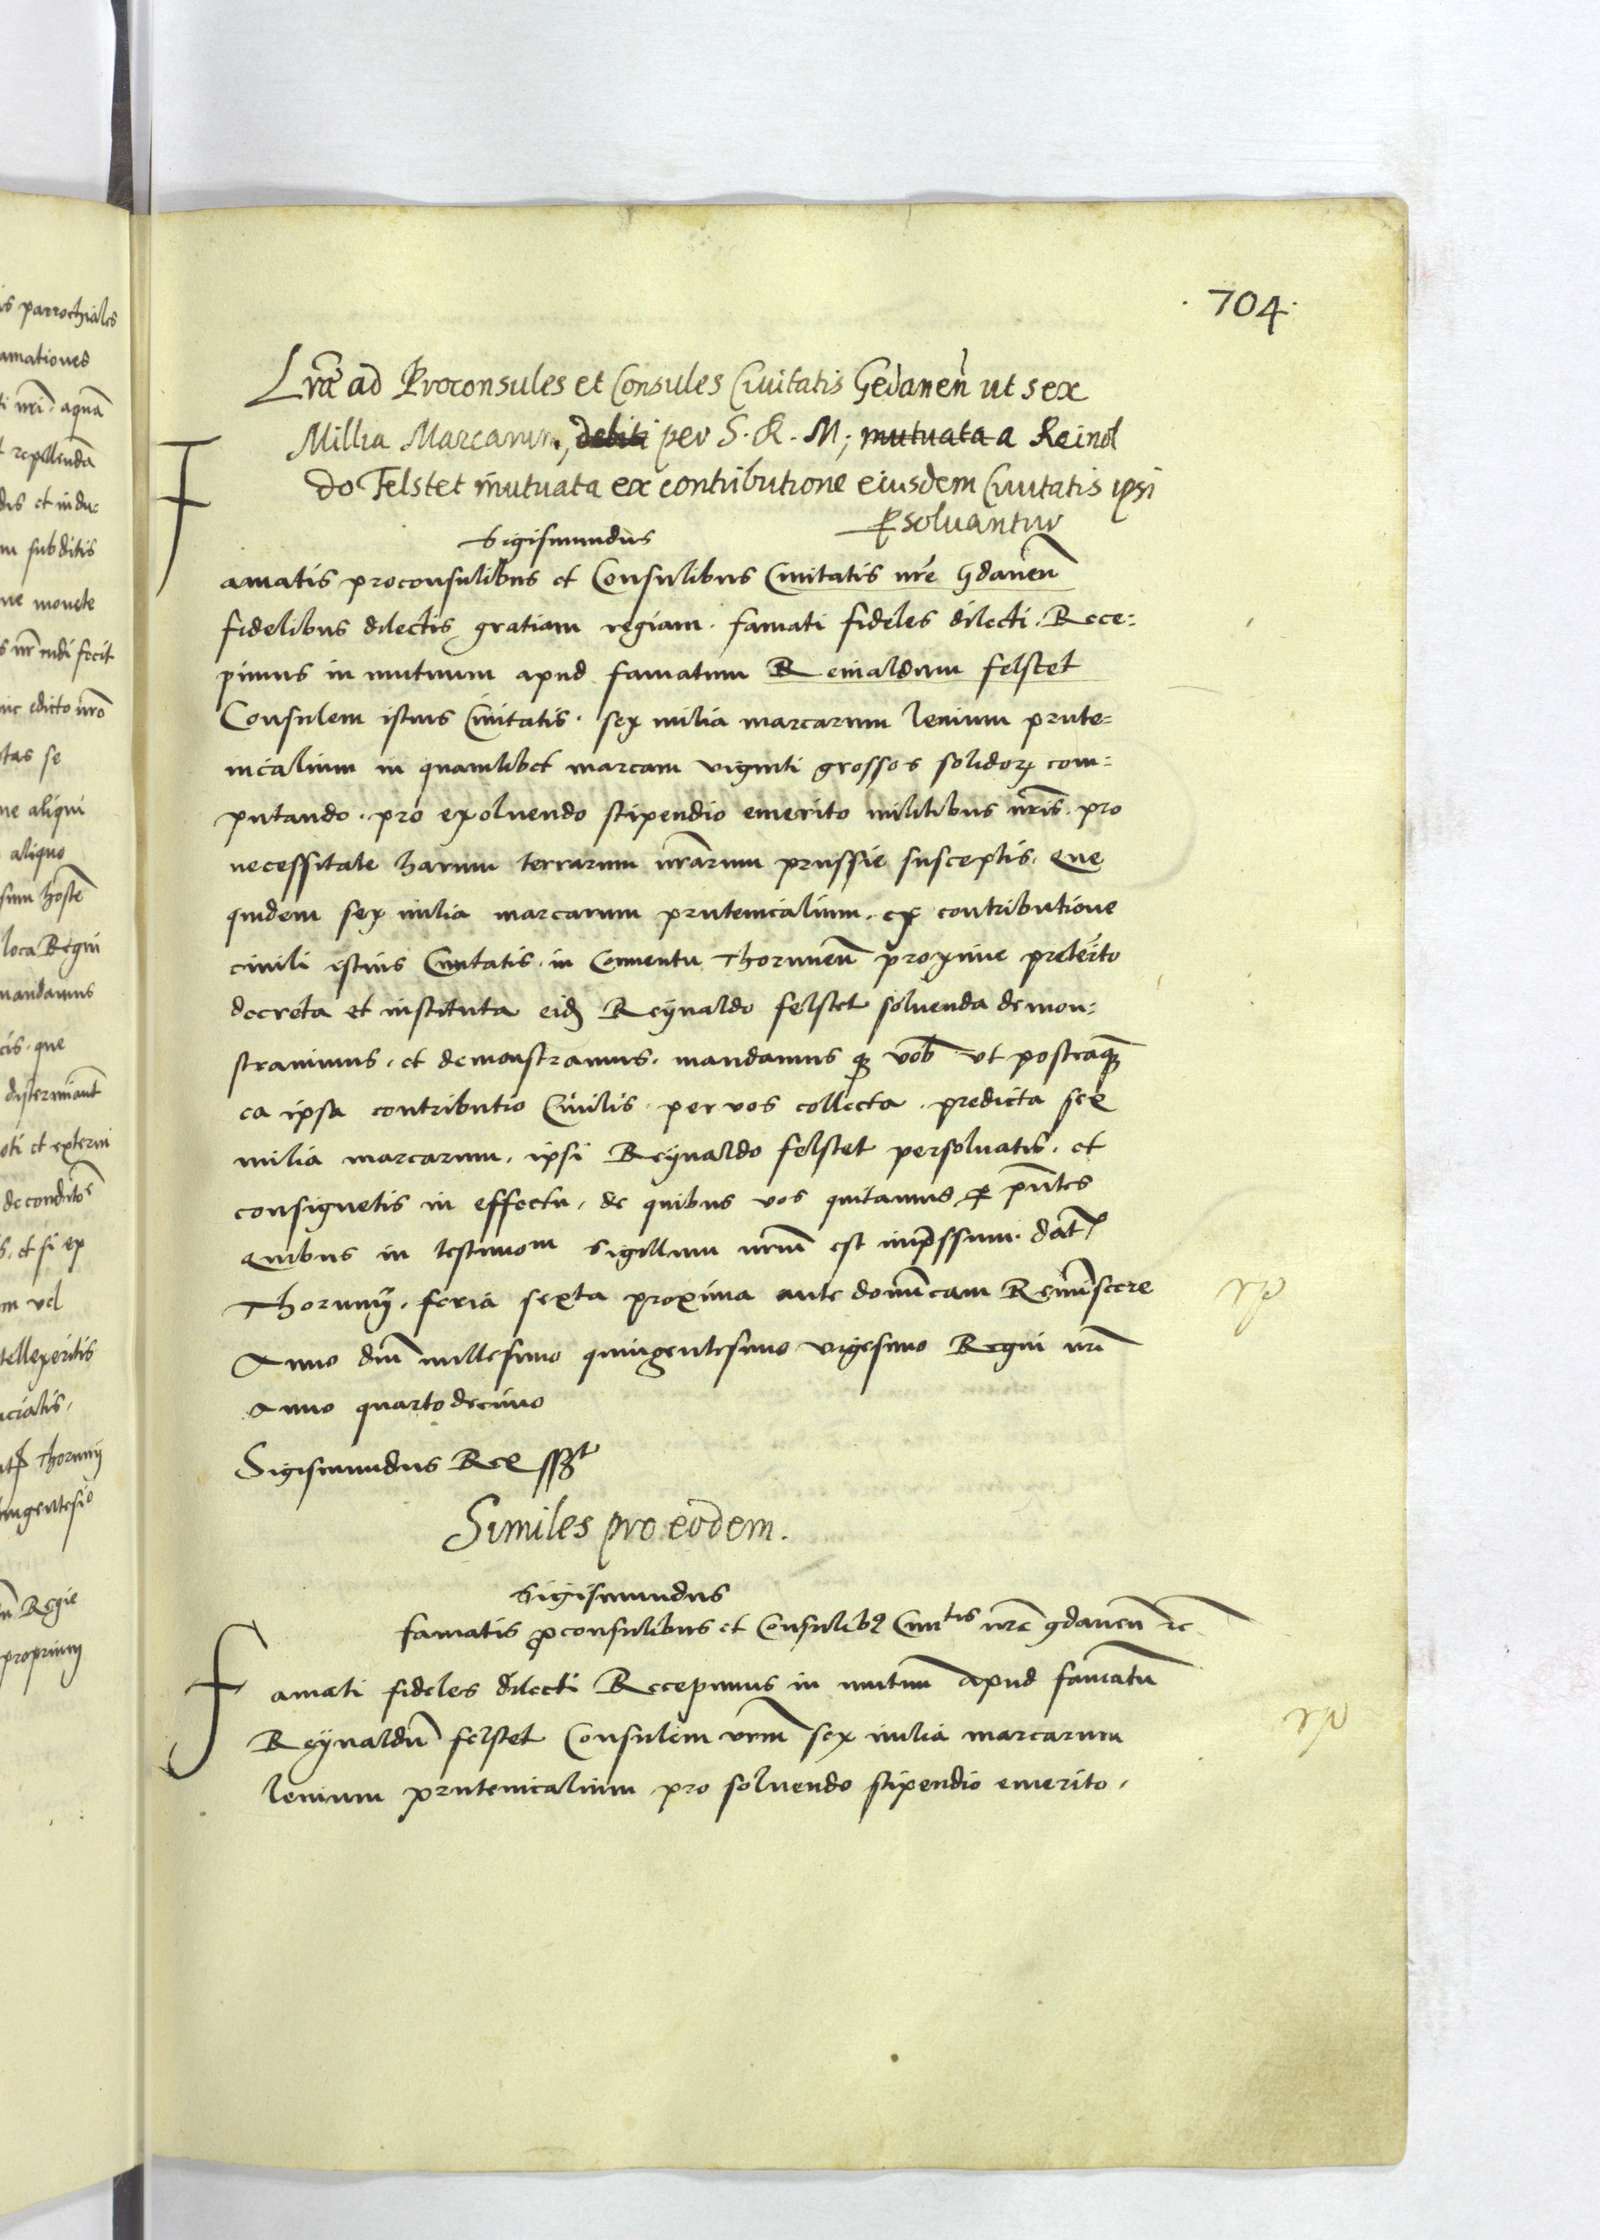 704
Lrae ad Proconsules et Consules Civitatis Gedanen̄ ut sex
Millia Marcarum, debiti per S. R. M; mutuata a Reinol
do Felstet mutuata ex contributione eiusdem Civitatis ipsi
p̱soluantur
Sigismundus
Famatis proconsulibus et Consulibus Civitatis nr̄e Gdanen̄
fidelibus dilectis gratiam regiam. famati fideles dilecti. Rece=
pimus in mutuum apud famatum Reinaldum felstet
Consulem istius Civitatis. sex milia marcarum levium prute=
nicalium in quamlibet marcam viginti grossos solidoꝝ com=
putando. pro exoluendo stipendio emerito militibus nr̄is. pro
necessitate harum terrarum nr̄arum prussie susceptis. Que
quidem sex milia marcarum prutenicalium. ex contributione
civili istius Civitatis. in Conventu Thorunen̄ proxime preterito
decreta et instituta eidꝫ Reynaldo felstet soluenda demon=
strauimus. et demonstramus. mandamus qꝫ vob̄ ut postꝗaꝫ
ea ipsa contributio Civilis per vos collecta. predicta sex
milia marcarum. ipsi Reynaldo felstet persoluatis. et
consignetis in effectu. de quibus vos quitamus ꝑ pn̄tes
Quibus in testimom sigillum nr̄um est imp̄ssum. Dat̄
Thorunij. feria sexta proxima ante dominicam Reminiscere
Anno dn̄i millesimo quingentesimo vigesimo Regni nr̄i
Anno quarto decimo
Sigismundus Rex sszt
Similes pro eodem.
Sigismundus
famatis ꝓconsulibus et Consulibꝰ Civitis nr̄e gdanen̄ zc
Famati fideles dilecti Recepimus in mutuū apud famatū
Reynaldū felstet Consulem vr̄m sex milia marcarum
levium prutenicalium pro soluendo stipendio emerito.